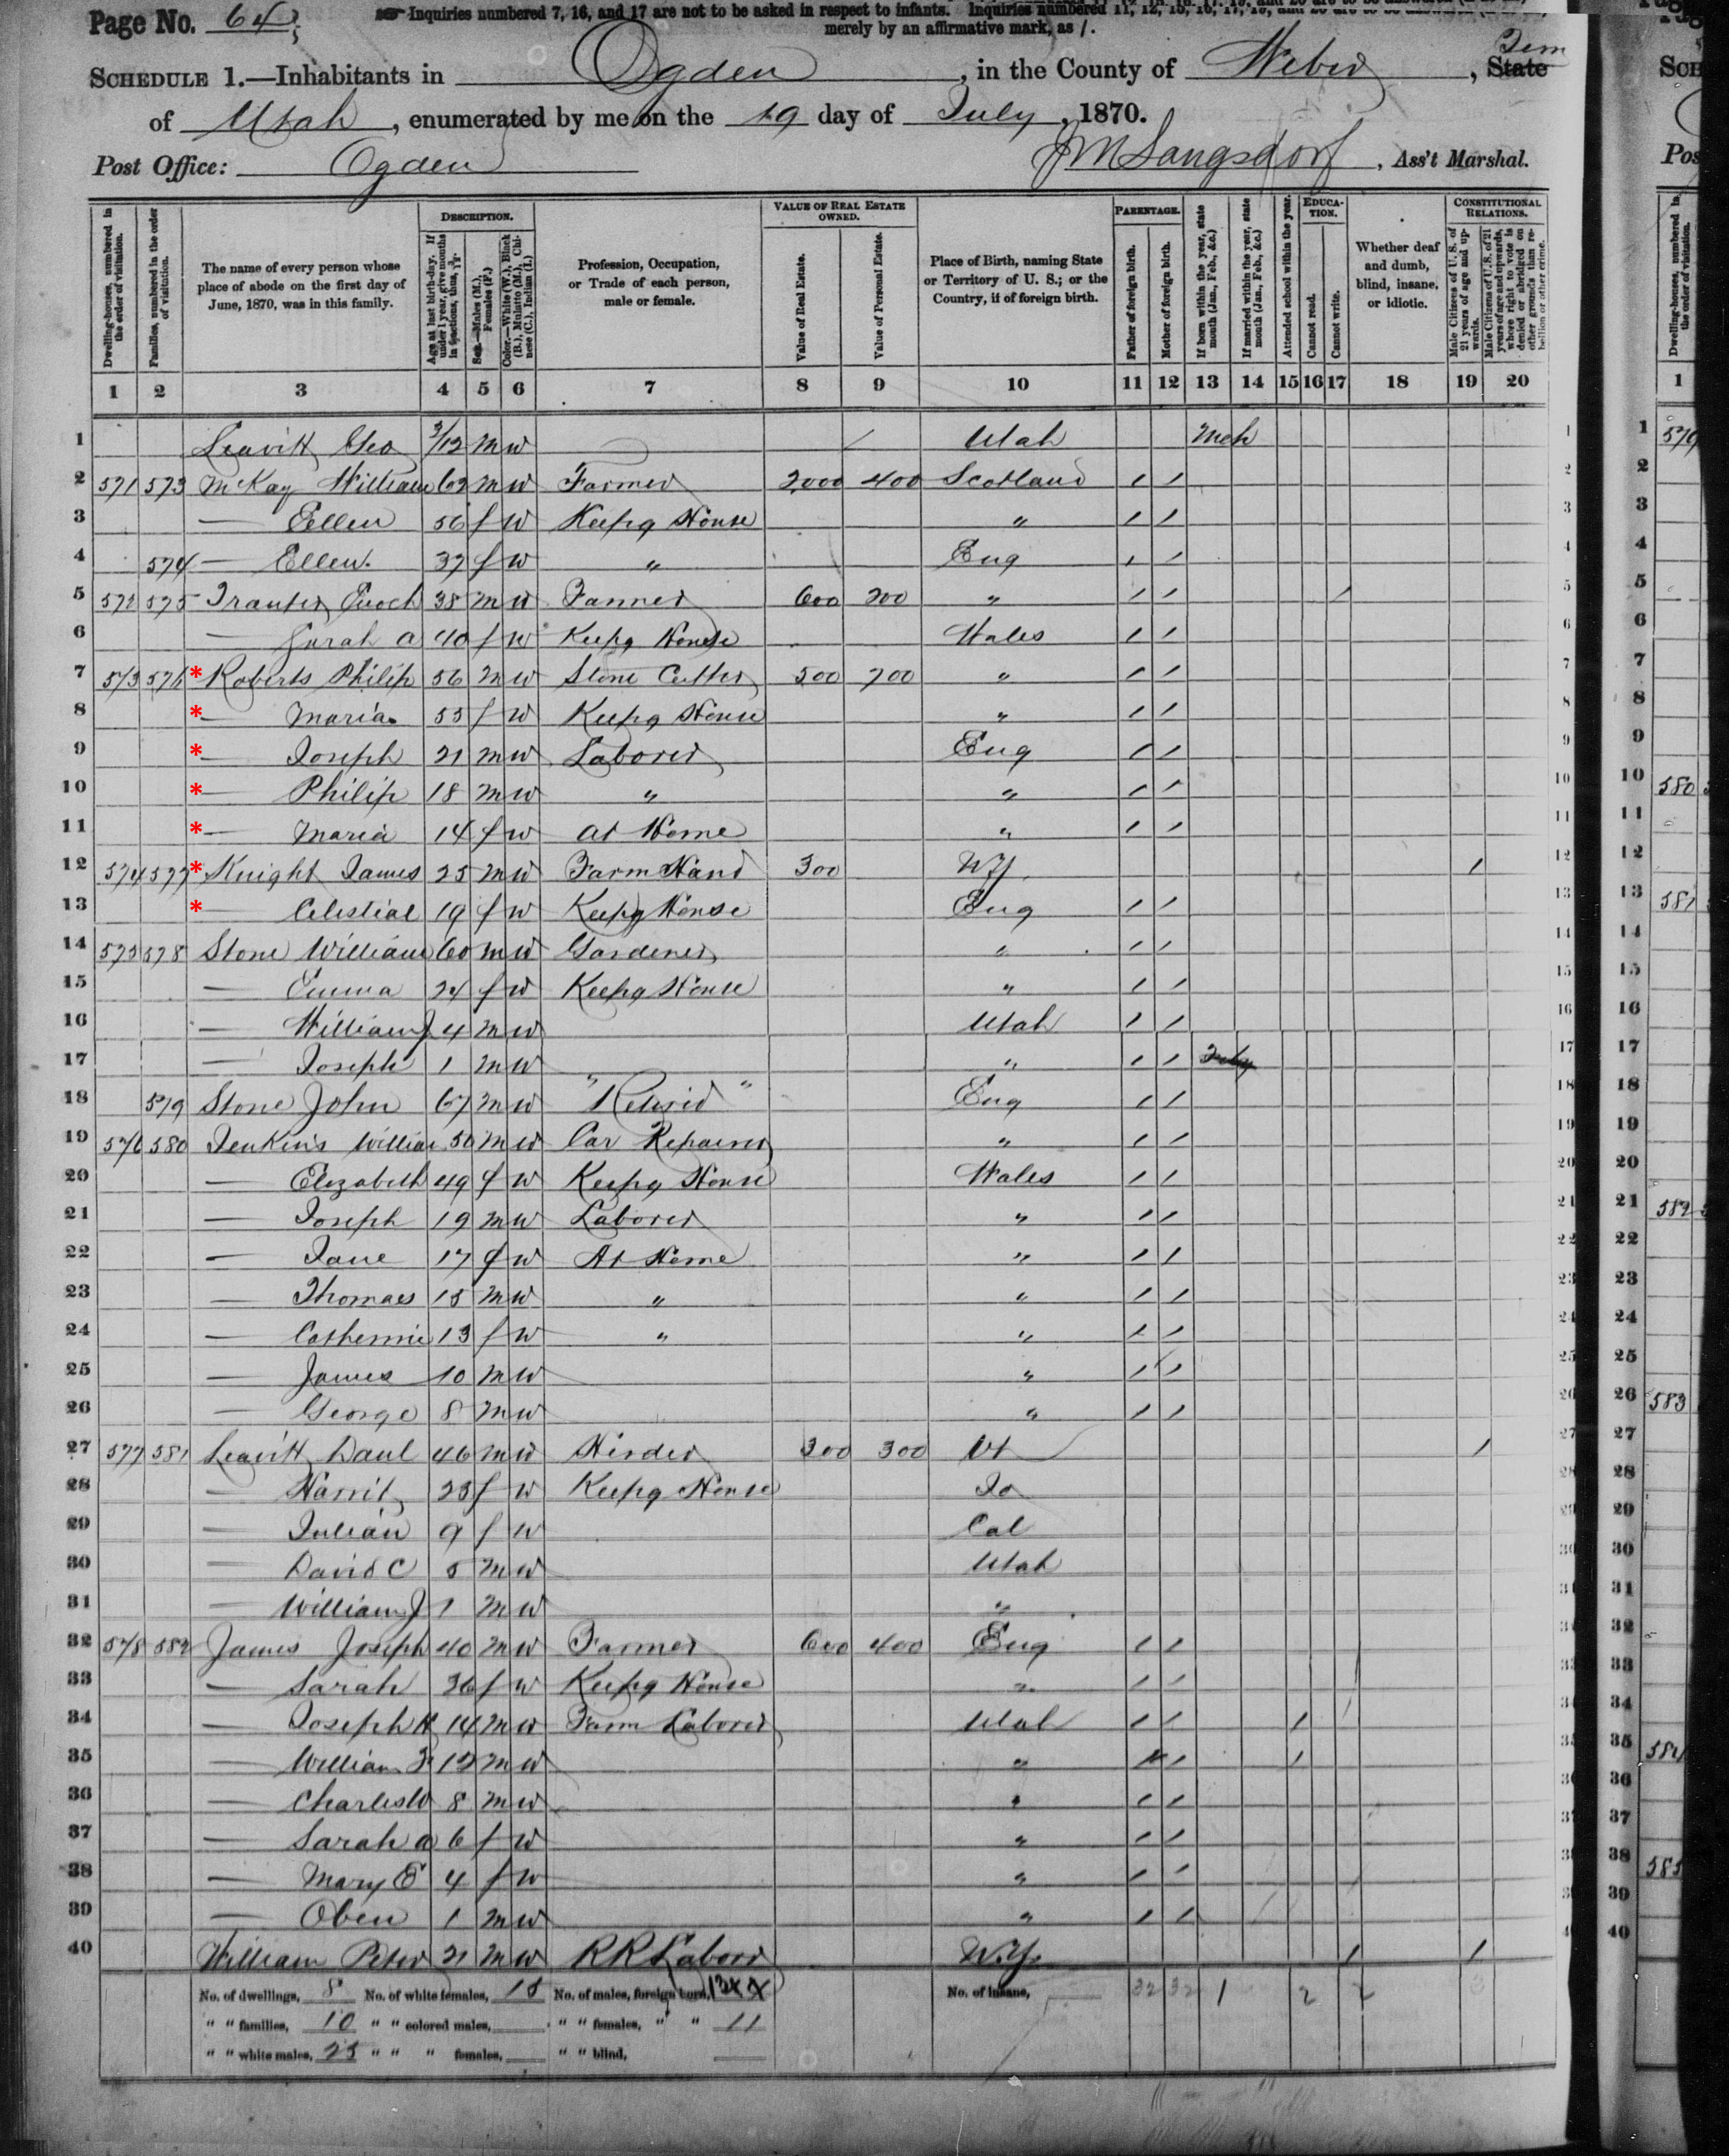 Page No. 64
Inquiries numbered 7, 16, and 17 are not to be asked in respect to infants. Inquiries numbered 11, 12, 15, 16, 17, 19, and 20 are to be answered (if at all)
merely by an affirmative mark, as /.
SCHEDULE 1.—Inhabitants in Ogden, in the County of Weber, State
of Utah, enumerated by me on the 19 day of July, 1870.
Post Office: Ogden
J M Langsdorf, Ass't Marshal.
Dwelling-houses, numbered in the order of visitation.
Families, numbered in the order of visitation.
The name of every person whose place of abode on the first day of June, 1870, was in this family.
DESCRIPTION.
Age at last birth-day. If under 1 year, give months in fractions, thus, 3/12.
Sex.—Males (M.), Females (F.)
Color.—White (W.), Black (B.), Mulatto (M.), Chinese (C.), Indian (I.)
Profession, Occupation, or Trade of each person, male or female.
VALUE OF REAL ESTATE OWNED.
Value of Real Estate.
Value of Personal Estate.
Place of Birth, naming State or Territory of U. S.; or the Country, if of foreign birth.
PARENTAGE.
Father of foreign birth.
Mother of foreign birth.
If born within the year, state month (Jan., Feb., &c.)
If married within the year, state month (Jan., Feb., &c.)
Attended school within the year.
EDUCATION.
Cannot read.
Cannot write.
Whether deaf and dumb, blind, insane, or idiotic.
CONSTITUTIONAL RELATIONS.
Male Citizens of U. S. of 21 years of age and upwards.
Male Citizens of U. S. of 21 years of age and upwards, where right to vote is denied or abridged on other grounds than rebellion or other crime.
1 2 3 4 5 6 7 8 9 10 11 12 13 14 15 16 17 18 19 20
1 Leavitt Geo 3/12 m w Utah Mch 1
2 571 573 McKay William 62 m w Farmer 2000 400 Scotland / / 2
3 — Eellen 56 f w Keepg House " / / 3
4 574 — Ellen 37 f w " Eng / / 4
5 572 575 Tranter Enoch 38 m w Farmer 600 200 " / / / 5
6 — Sarah A 40 f w Keepg House Wales / / 6
7 573 576 * Roberts Philip 56 m w Stone Cutter 500 200 " / / 7
8 * — Maria 55 f w Keepg House " / / 8
9 * — Joseph 21 m w Laborer Eng / / 9
10 * — Philip 18 m w " " / / 10
11 * — Maria 14 f w at Home " / / 11
12 574 577 * Knight James 25 m w Farm Hand 300 NY / 12
13 * — Celestial 19 f w Keepg House Eng / / 13
14 575 578 Stone William 60 m w Gardener " / / 14
15 — Emma 24 f w Keepg House " / / 15
16 — William J 4 m w Utah / / 16
17 — Joseph 1 m w " / / July 17
18 579 Stone John 67 m w "Retired" Eng / / 18
19 576 580 Jenkins William 50 m w Car Repairer " / / 19
20 — Elizabeth 49 f w Keepg House Wales / / 20
21 — Joseph 19 m w Laborer " / / 21
22 — Jane 17 f w At Home " / / 22
23 — Thomas 15 m w " " / / 23
24 — Catherine 13 f w " " / / 24
25 — James 10 m w " / / 25
26 — George 8 m w " / / 26
27 577 581 Leavitt Danl 46 m w Herder 300 300 Vt / 27
28 — Harrit 25 f w Keepg House Io 28
29 — Julian 9 f w Cal 29
30 — David C 5 m w Utah 30
31 — William J 1 m w " 31
32 578 582 James Joseph 40 m w Farmer 600 400 Eng / / 32
33 — Sarah 36 f w Keepg House " / / 33
34 — Joseph H 14 m w Farm Laborer Utah / / / 34
35 — William F 12 m w " / / / 35
36 — Charles W 8 m w " / / 36
37 — Sarah A 6 f w " / / 37
38 — Mary E 4 f w " / / 38
39 — Oben 1 m w " / / 39
40 William Peter 21 m w RR Labor N.Y. / / 40
No. of dwellings, 8 No. of white females, 15 No. of males, foreign born, No. of insane, 32 32 1 2 2
" " families, 10 " " colored males, " " females, " " 11
" " white males, 25 " " " females, " " blind,